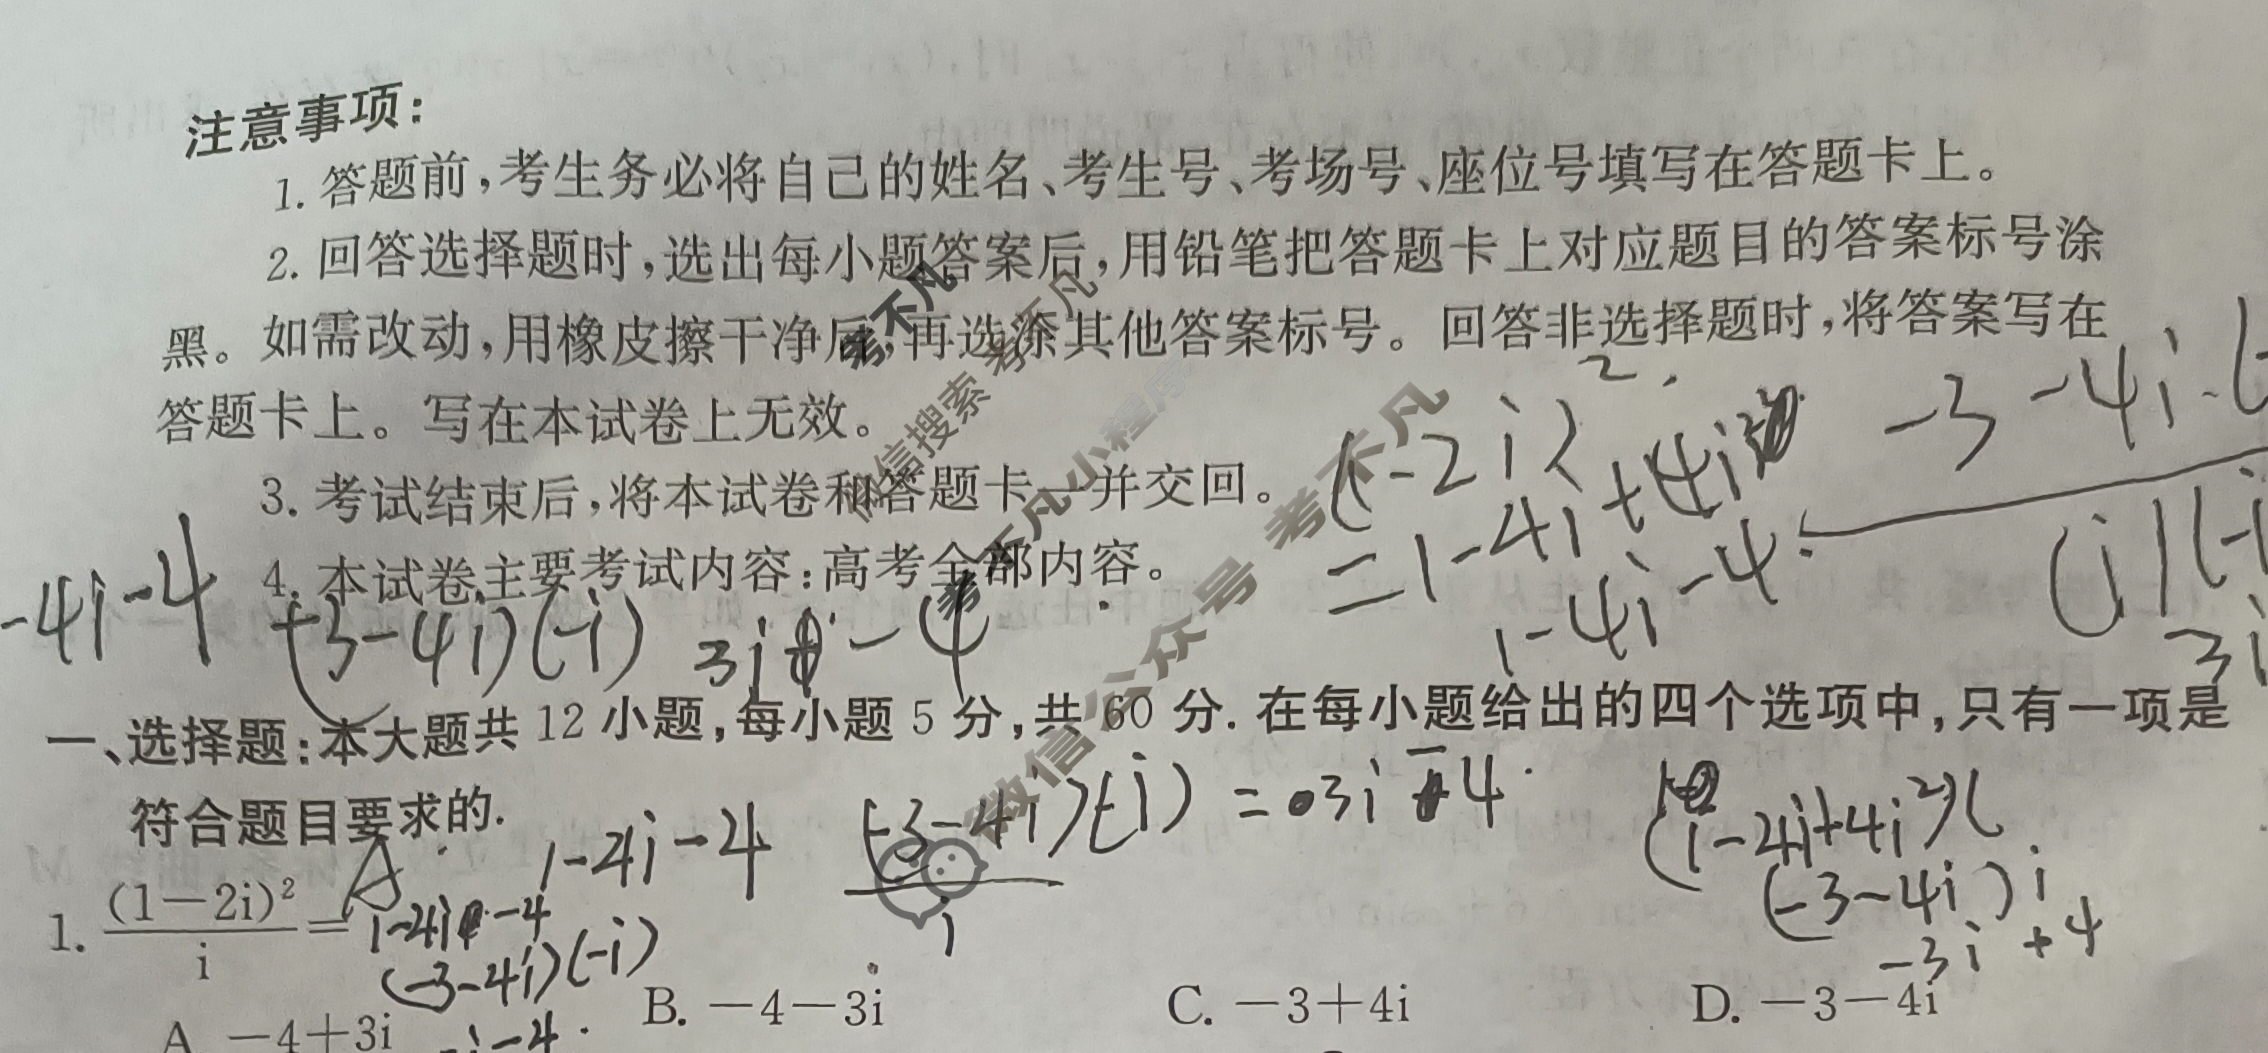 注意事项:
1. 答题前,考生务必将自己的姓名、考生号、考场号、座位号填写在答题卡上。
2. 回答选择题时,选出每小题答案后,用铅笔把答题卡上对应题目的答案标号涂
黑。如需改动,用橡皮擦干净后,再选涂其他答案标号。回答非选择题时,将答案写在
答题卡上。写在本试卷上无效。
3. 考试结束后,将本试卷和答题卡一并交回。
4. 本试卷主要考试内容:高考全部内容。
考不凡
微信搜索 考不凡
考不凡小程序
微信公众号 考不凡
(-2i)2
=1-4i+4i
1-4i-4
-3-4i
-4i-4
(-3-4i)(-i) 3i-4
一、选择题:本大题共 12 小题,每小题 5 分,共 60 分. 在每小题给出的四个选项中,只有一项是
符合题目要求的.
1-4i-4
(-3-4i)(-i) =3i-4
i
(1-4i+4i²)(
(-3-4i)i
-3i+4
1. (1-2i)²/i = A
1-4i-4
(-3-4i)(-i)
A. -4+3i
B. -4-3i
C. -3+4i
D. -3-4i